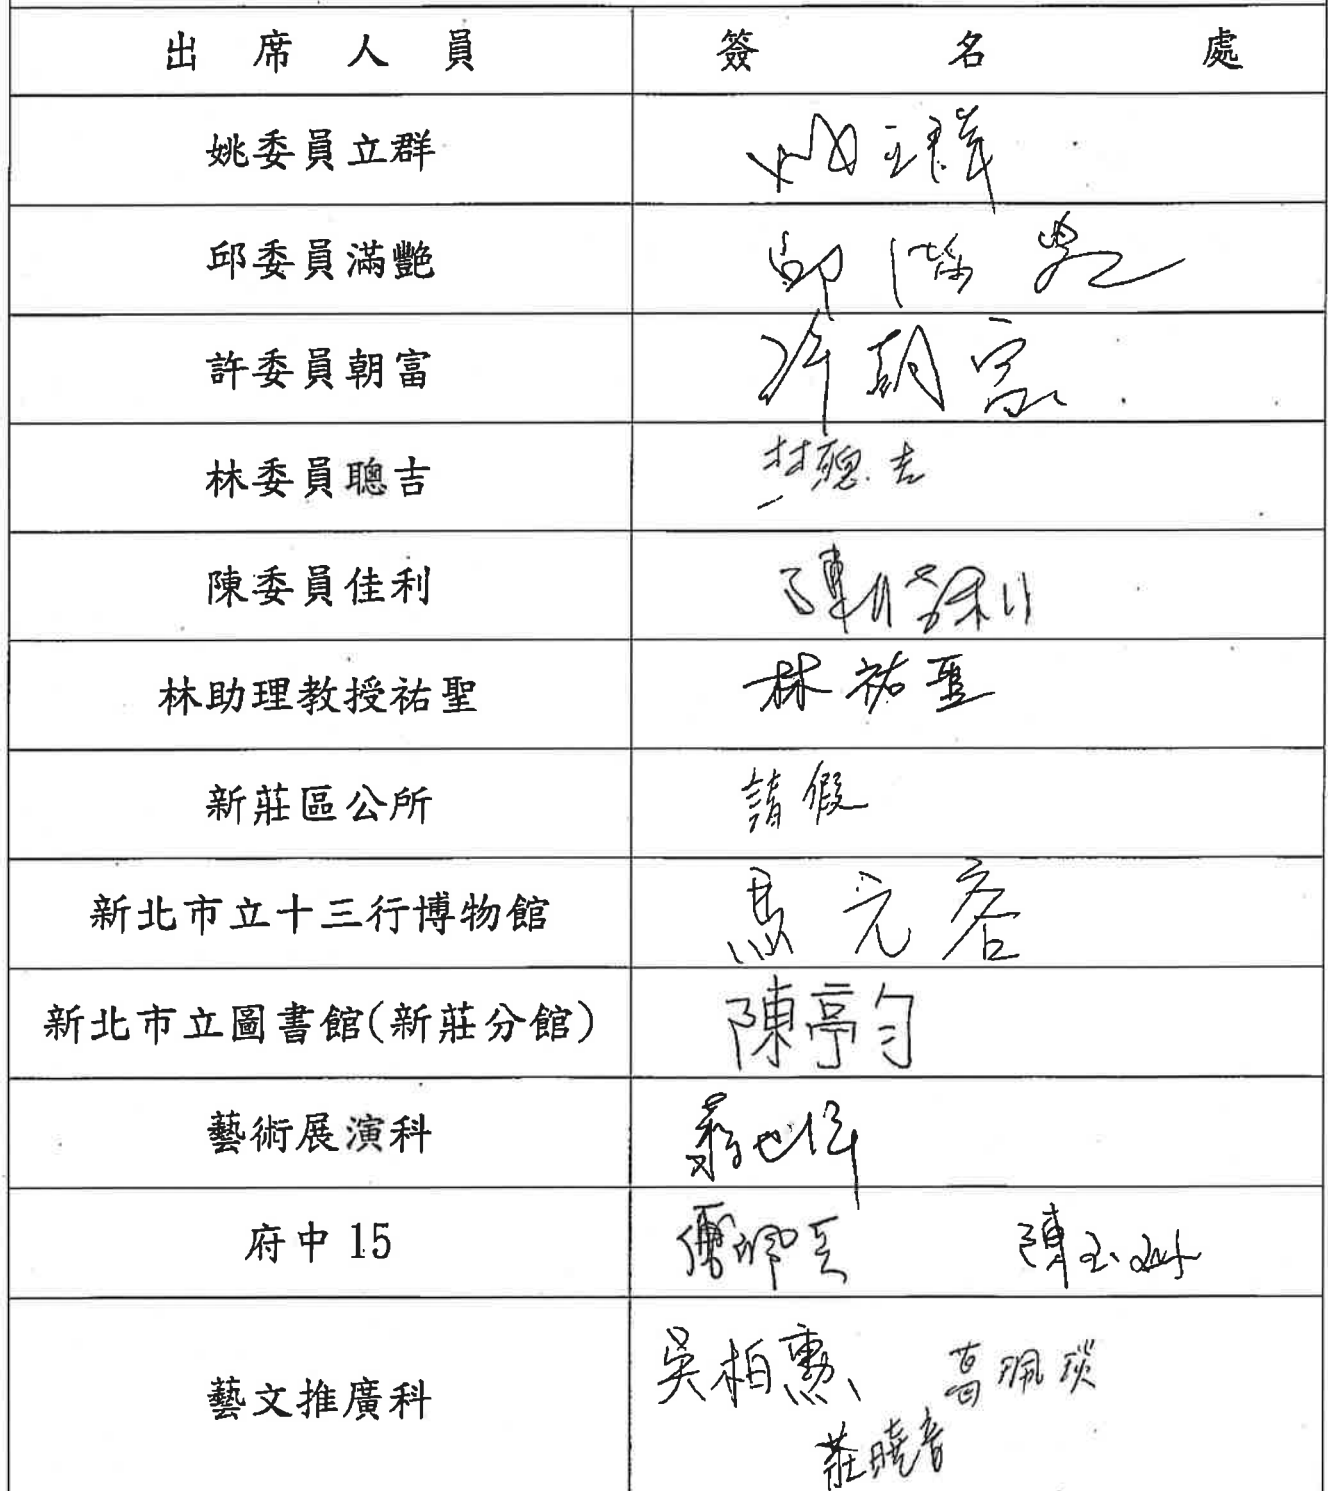 出席人員 簽名處
姚委員立群 姚立群
邱委員滿艷 邱滿艷
許委員朝富 許朝富
林委員聰吉 林聰吉
陳委員佳利 陳佳利
林助理教授祐聖 林祐聖
新莊區公所 請假
新北市立十三行博物館 馬元容
新北市立圖書館(新莊分館) 陳亭勻
藝術展演科
府中15 陳玉
藝文推廣科 吳柏勳 葛珮琰
莊曉音